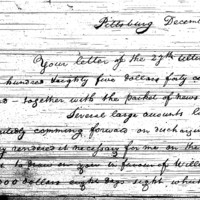 Pittsburg Decem
Your letter of the 27th
hundred & eighty five dollars forty c
together with the packet of news
Several large amounts
comming forward on
rendered it necessary for me on the
to draw on you in favour of Will
00 dollars eight days sight whi